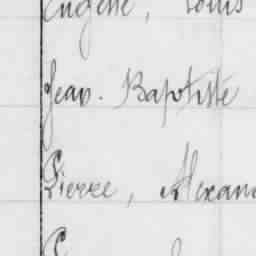 Eugène, Louis
Jean-Baptiste
Pierre, Alexan